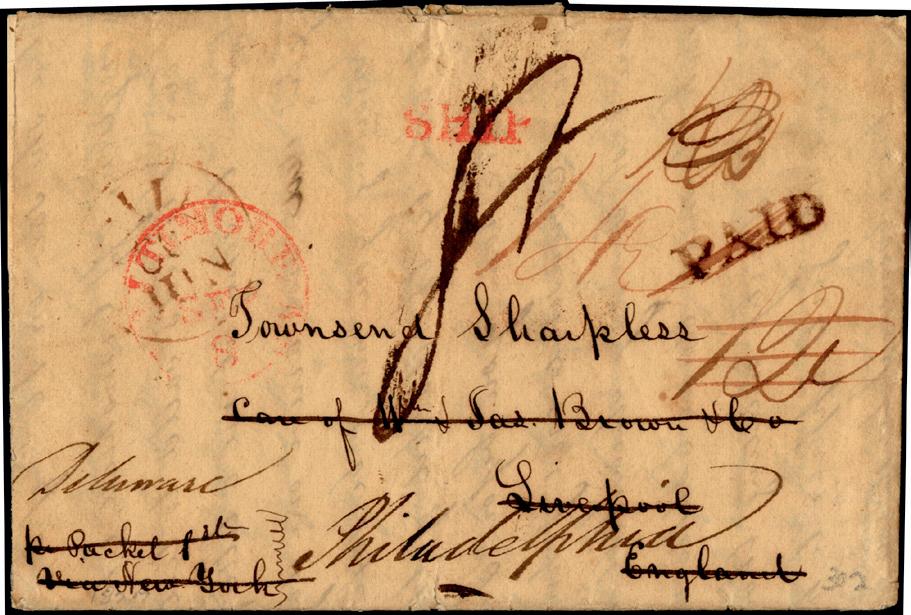 SHIP
PAID
JUN
Townsend Sharpless
Care of Wm & Jas. Brown & Co
Liverpool
England
Delaware
Philadelphia
pr Packet 1st
Via New York
302